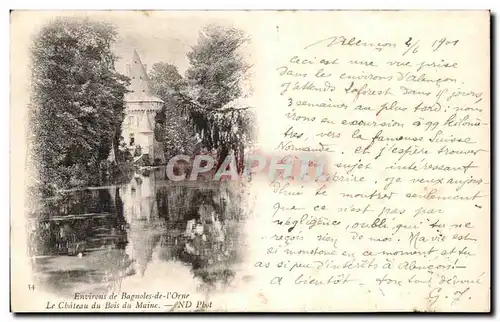 Alençon 2/6 1901
Ceci est une vue prise
dans les environs d'Alençon.
J'attends Laforest dans 15 jours
3 semaines au plus tard: nous
irons en excursion à 99 kilomè-
tres, vers la fameuse Suisse
Normande, et j'espère trouver
sujet intéressant
Je veux aujour-
d'hui te montrer seulement
que ce n'est pas par
négligence, oubli, que tu ne
reçois rien de moi. Ma vie est
si monotone en ce moment et tu
as si peu d'intérêts à Alençon -
à bientôt - ton tout dévoué
CPARAMA.COM
14
Environs de Bagnoles-de-l'Orne
Le Château du Bois du Maine. — ND Phot